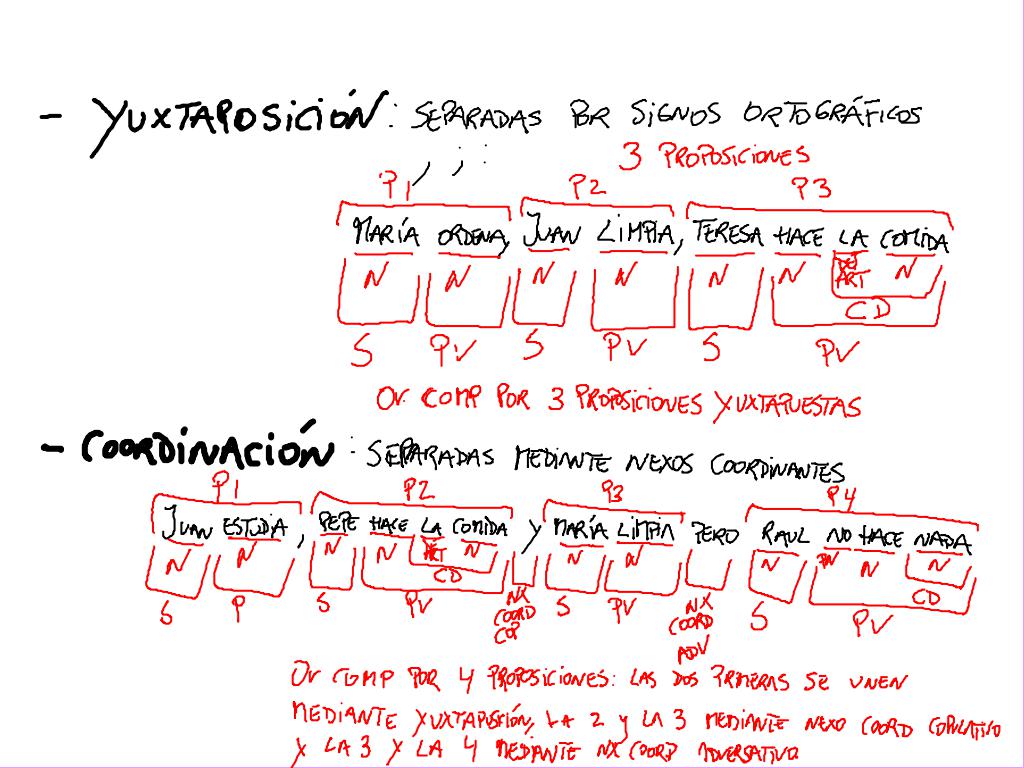 - YUXTAPOSICIÓN: SEPARADAS POR SIGNOS ORTOGRÁFICOS
, ; :
3 PROPOSICIONES
P1 P2 P3
MARÍA ORDENA, JUAN LIMPIA, TERESA HACE LA COMIDA
N N N N N N DET ART N
CD
S PV S PV S PV
Or COMP POR 3 PROPOSICIONES YUXTAPUESTAS
- COORDINACIÓN: SEPARADAS MEDIANTE NEXOS COORDINANTES
P1 P2 P3 P4
JUAN ESTUDIA, PEPE HACE LA COMIDA Y MARÍA LIMPIA PERO RAUL NO HACE NADA
N N N N ART N N N N N N
CD CD
S P S PV NX COORD COP S PV NX COORD ADV S PV
Or COMP POR 4 PROPOSICIONES: LAS DOS PRIMERAS SE UNEN
MEDIANTE YUXTAPOSICIÓN, LA 2 y LA 3 MEDIANTE NEXO COORD COPULATIVO
Y LA 3 Y LA 4 MEDIANTE NX COORD ADVERSATIVO